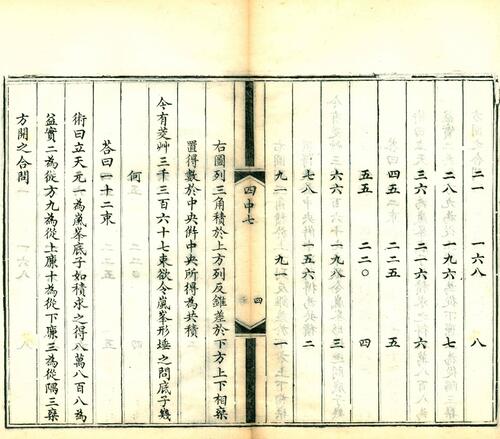 二一 一六八 八
二八 一九六 七
三六 二一六 六
四五 二二五 五
五五 二二〇 四
六六 一九八 三
七八 一五六 二
九一 九一 一
四中七 四
右圖列三角積於上方列反錐差於下方上下相椉
置得數於中央倂中央所得為共積
今有茭艸三千三百六十七束欲令嵐峯形埵之問底子幾
何
荅曰一十二束
術曰立天元一為嵐峯底子如積求之得八萬八百八為
益實二為從方九為從上廉十為從下廉三為從隅三椉
方開之合問